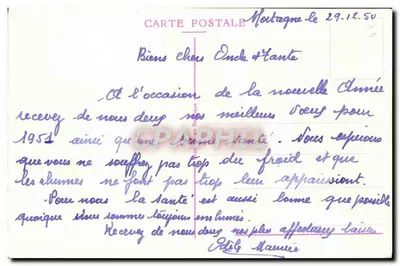 CARTE POSTALE
Mortagne le 29.12.50
Biens chers Oncle et Tante
A l'occasion de la nouvelle Année
recevez de nous deux nos meilleurs Voeux pour
1951 ainsi qu'une bonne santé. Nous espérons
que vous ne souffrez pas trop du froid et que
les rhumes ne font pas trop leur apparaissont.
Pour nous la santé est aussi bonne que possible
quoique nous somme toujours enrhumés.
Recevez de nous deux nos plus affectueux baisers
Maurice